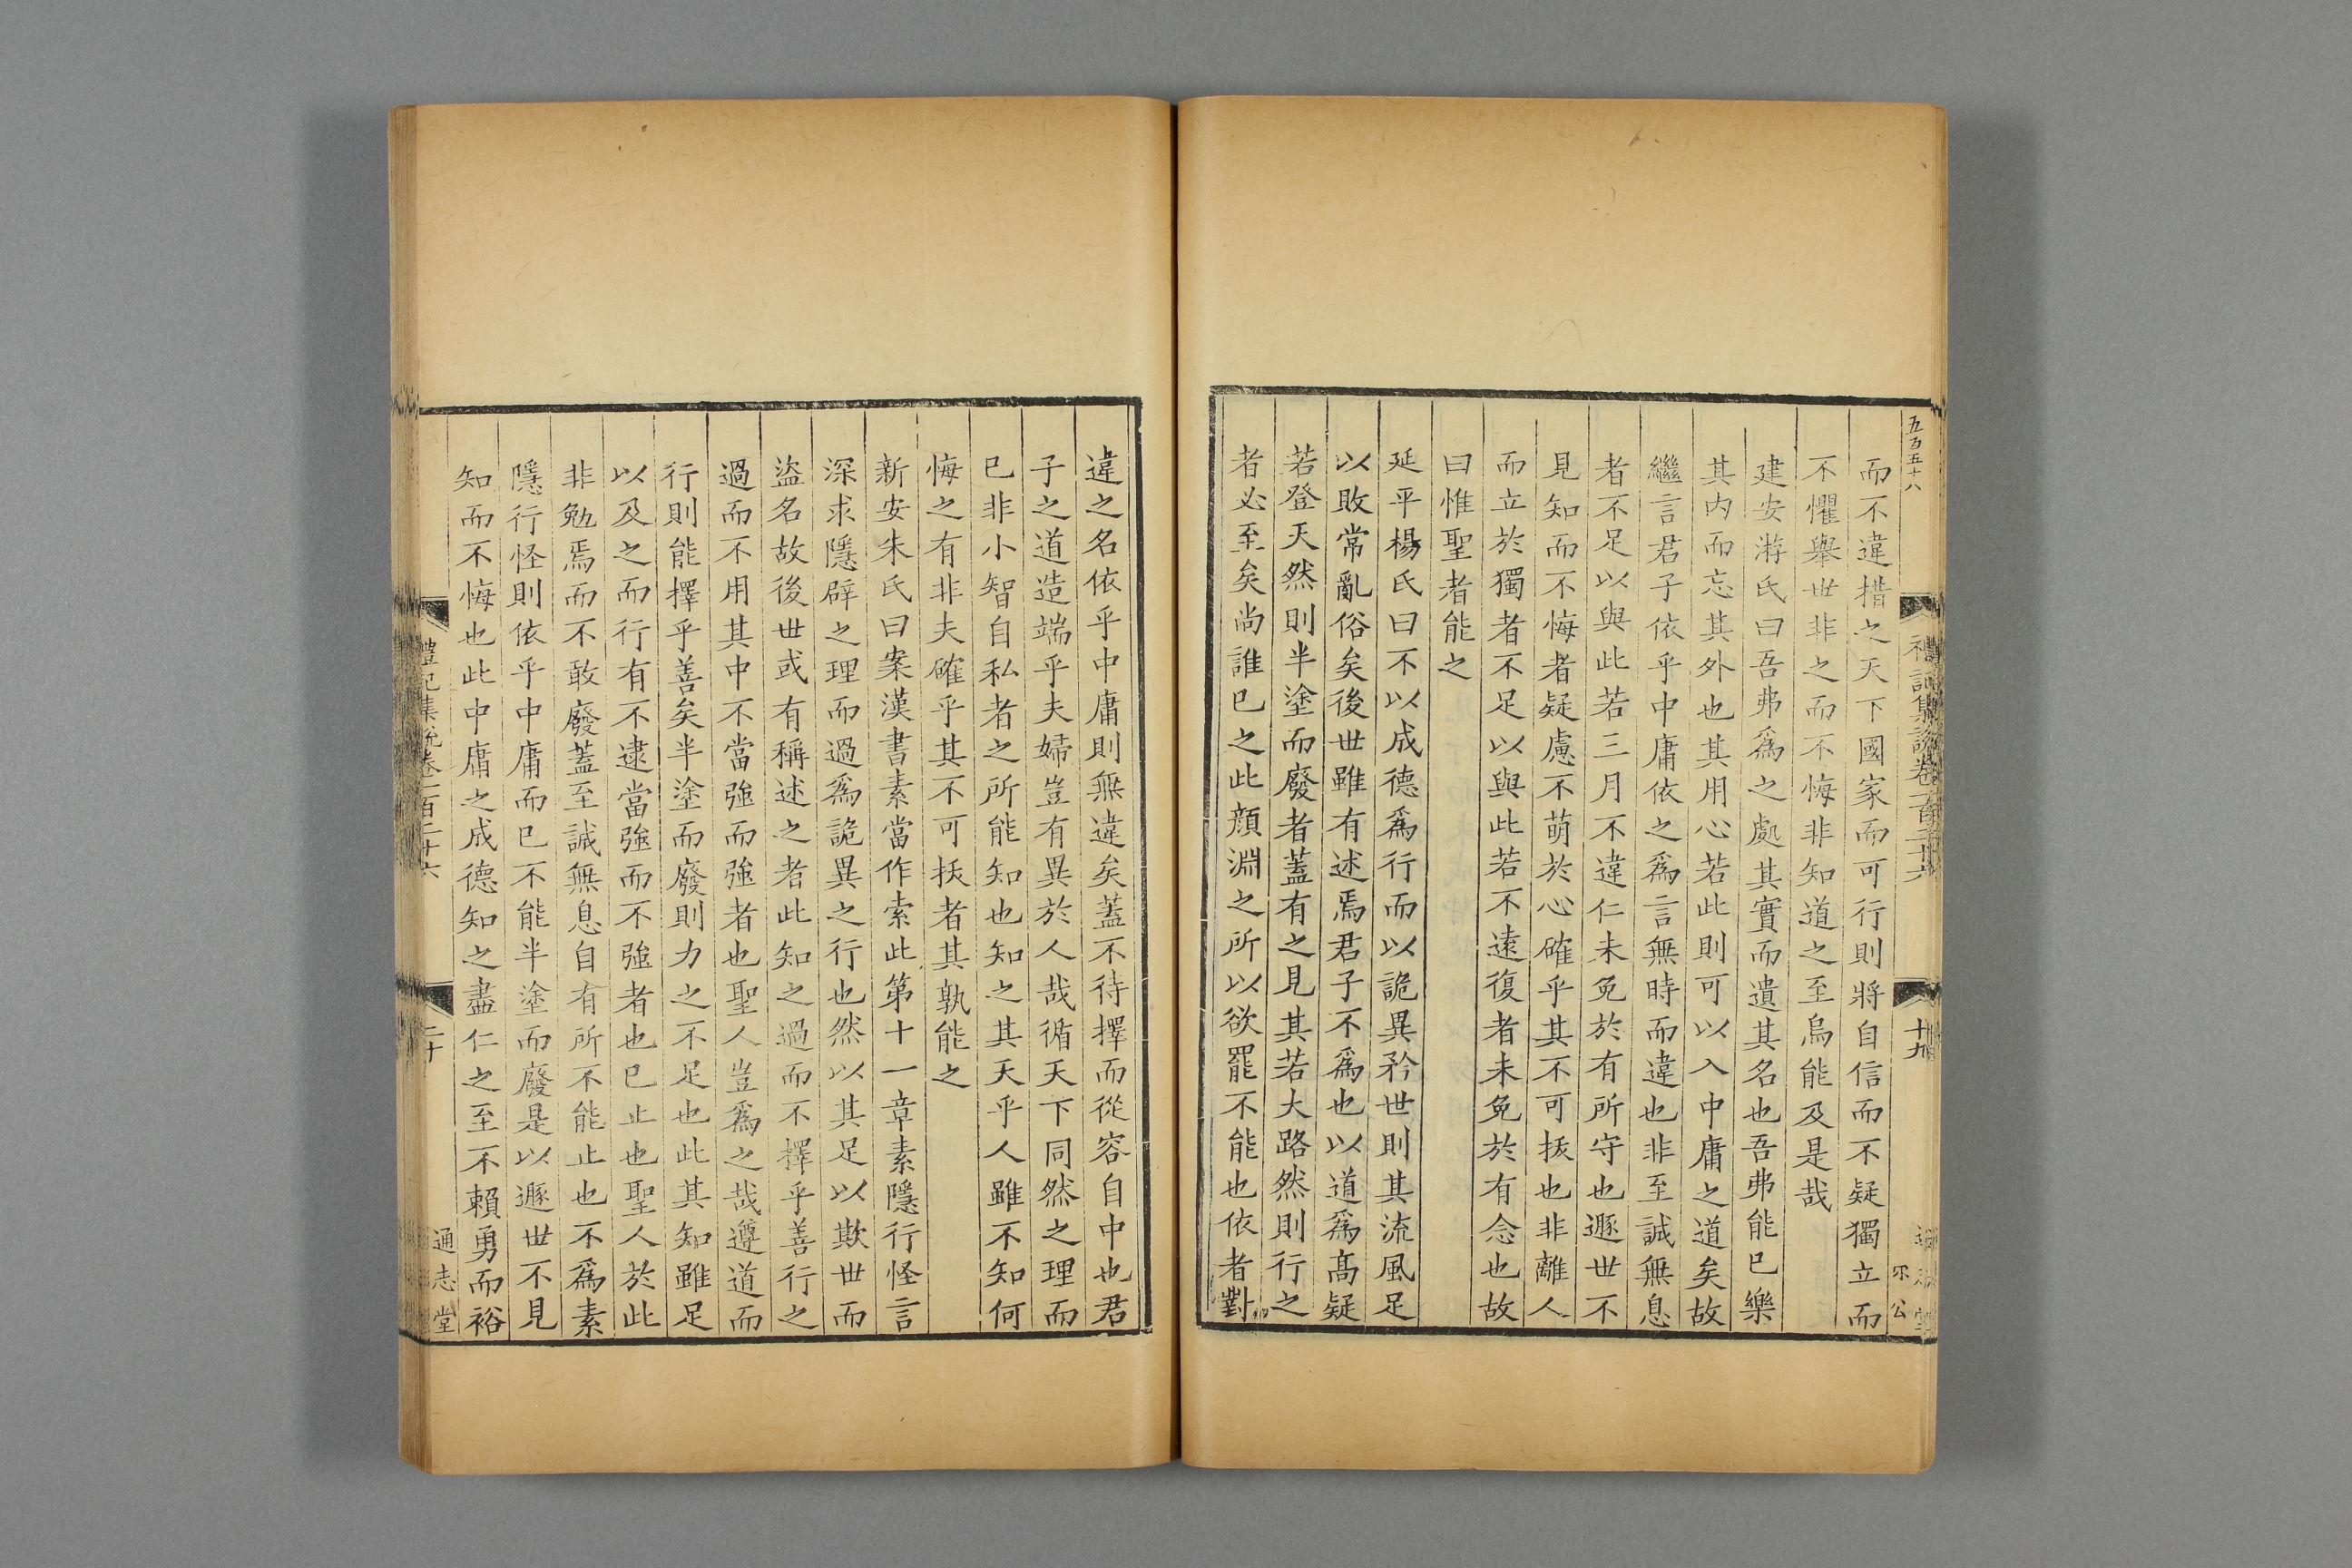 五百五十八
而不違措之天下國家而可行則將自信而不疑獨立而
不懼舉世非之而不悔非知道之至烏能及是哉
建安游氏曰吾弗爲之處其實而遺其名也吾弗能已樂
其内而忘其外也其用心若此則可以入中庸之道矣故
繼言君子依乎中庸依之爲言無時而違也非至誠無息
者不足以與此若三月不違仁未免於有所守也遯世不
見知而不悔者疑慮不萌於心確乎其不可拔也非離人
而立於獨者不足以與此若不遠復者未免於有念也故
曰惟聖者能之
延平楊氏曰不以成德爲行而以詭異矜世則其流風足
以敗常亂俗矣後世雖有述焉君子不爲也以道爲髙疑
若登天然則半塗而廢者蓋有之見其若大路然則行之
者必至矣尚誰已之此顔淵之所以欲罷不能也依者對
違之名依乎中庸則無違矣蓋不待擇而從容自中也君
子之道造端乎夫婦豈有異於人哉循天下同然之理而
已非小智自私者之所能知也知之其天乎人雖不知何
悔之有非夫確乎其不可拔者其孰能之
新安朱氏曰案漢書素當作索此第十一章素隱行怪言
深求隱僻之理而過爲詭異之行也然以其足以欺世而
盜名故後世或有稱述之者此知之過而不擇乎善行之
過而不用其中不當強而強者也聖人豈爲之哉遵道而
行則能擇乎善矣半塗而廢則力之不足也此其知雖足
以及之而行有不逮當強而不強者也已止也聖人於此
非勉焉而不敢廢蓋至誠無息自有所不能止也不爲素
隱行怪則依乎中庸而已不能半塗而廢是以遯世不見
知而不悔也此中庸之成德知之盡仁之至不賴勇而裕
禮記集説卷一百二十六
二十
通志堂